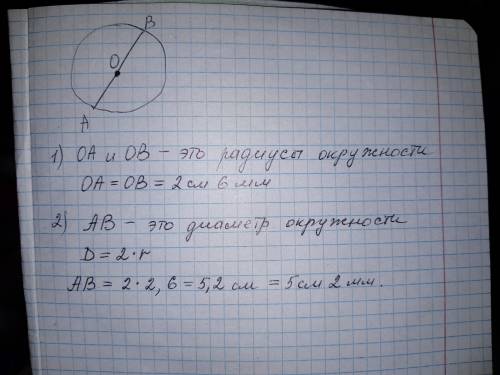 B
O
A
1) OA и OB - это радиусы окружности
OA = OB = 2 см 6 мм
2) AB - это диаметр окружности
D = 2 · r
AB = 2 · 2, 6 = 5,2 см = 5 см 2 мм.